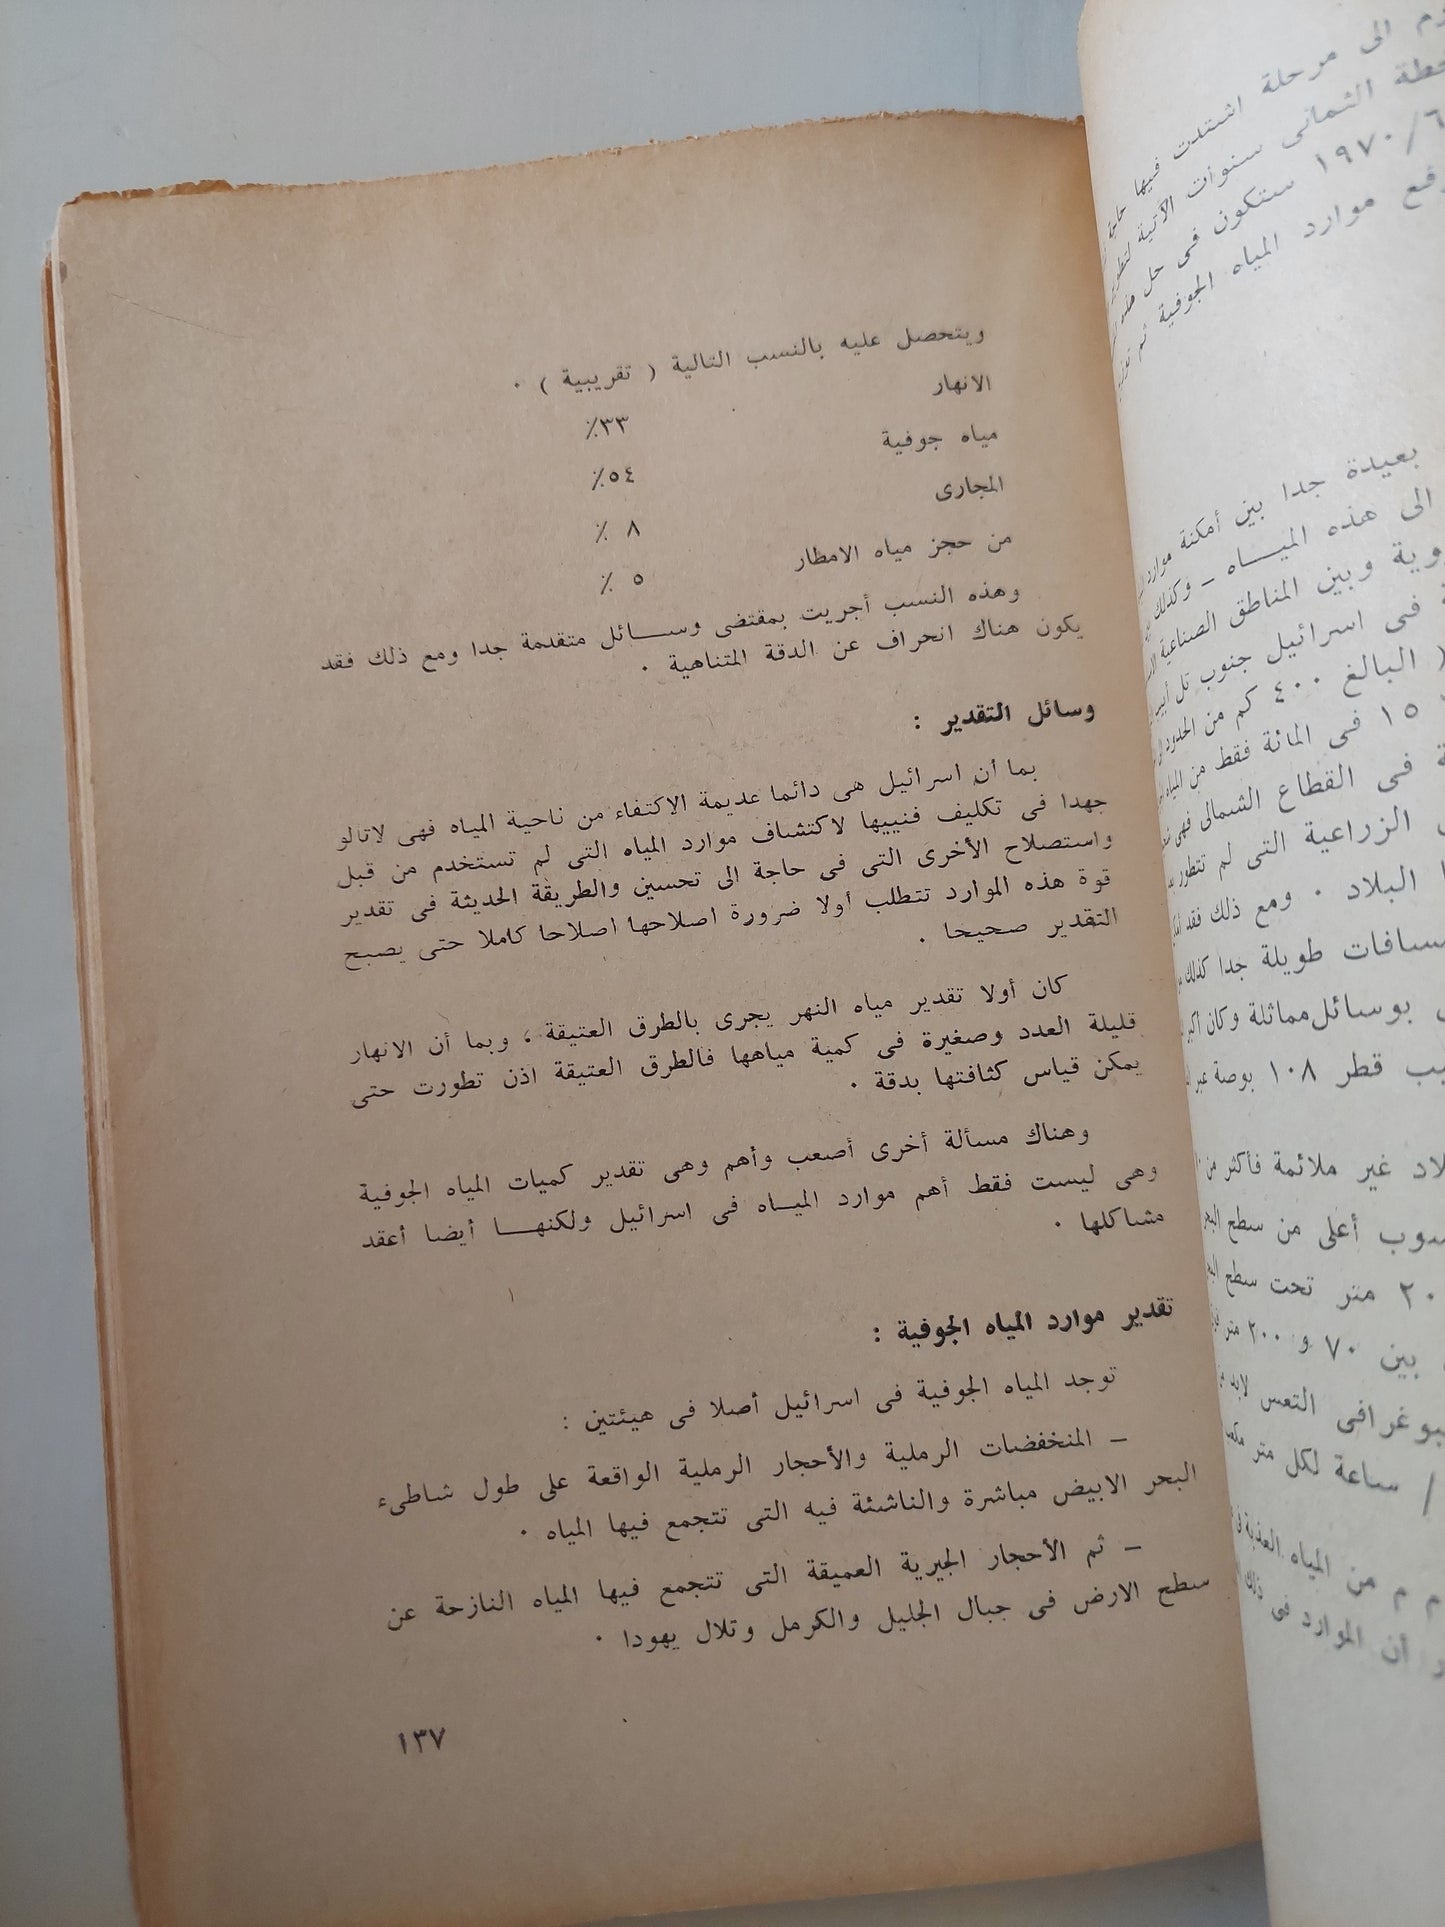 ويتحصل عليه بالنسب التالية ( تقريبية ) ٠
الانهار ٣٣٪
مياه جوفية ٥٤٪
المجارى ٨ ٪
من حجز مياه الامطار ٥ ٪
وهذه النسب أجريت بمقتضى وسائل متقدمة جدا ومع ذلك فقد
يكون هناك انحراف عن الدقة المتناهية ٠
وسائل التقدير :
بما أن اسرائيل هى دائما عديمة الاكتفاء من ناحية المياه فهى لاتالو
جهدا فى تكليف فنييها لاكتشاف موارد المياه التى لم تستخدم من قبل
واستصلاح الأخرى التى فى حاجة الى تحسين والطريقة الحديثة فى تقدير
قوة هذه الموارد تتطلب أولا ضرورة اصلاحها اصلاحا كاملا حتى يصبح
التقدير صحيحا ٠
كان أولا تقدير مياه النهر يجرى بالطرق العتيقة ، وبما أن الانهار
قليلة العدد وصغيرة فى كمية مياهها فالطرق العتيقة اذن تطورت حتى
يمكن قياس كثافتها بدقة ٠
وهناك مسألة أخرى أصعب وأهم وهى تقدير كميات المياه الجوفية
وهى ليست فقط أهم موارد الميــاه فى اسرائيل ولكنهــا أيضا أعقد
مشاكلها ٠
تقدير موارد المياه الجوفية :
توجد المياه الجوفية فى اسرائيل أصلا فى هيئتين :
– المنخفضات الرملية والأحجار الرملية الواقعة على طول شاطىء
البحر الابيض مباشرة والناشئة فيه التى تتجمع فيها المياه ٠
– ثم الأحجار الجيرية العميقة التى تتجمع فيها المياه النازحة عن
سطح الارض فى جبال الجليل والكرمل وتلال يهودا ٠
١٣٧
الى مرحلة اشتدت فيها
الثمانى سنوات الآتية
١٩٧٠/٦ ستكون فى حل
موارد المياه الجوفية ثم
بعيدة جدا بين أمكنة موارد
الى هذه الميــاه – وكذلك
وبين المناطق الصناعية
فى اسرائيل جنوب تل
( البالغ ٤٠٠ كم من الحدود
١٥ فى المائة فقط من المياه
فى القطاع الشمالى فهى
الزراعية التى لم تتطور
البلاد ٠ ومع ذلك فقد
طويلة جدا كذلك
بوسائل مماثلة وكان
قطر ١٠٨ بوصة عبر
غير ملائمة فأكثر من
أعلى من سطح
متر تحت سطح
بين ٧٠ و ٢٠٠ متر
التعس لابد
/ ساعة لكل متر
م م من المياه العذبة
أن الموارد فى ذلك